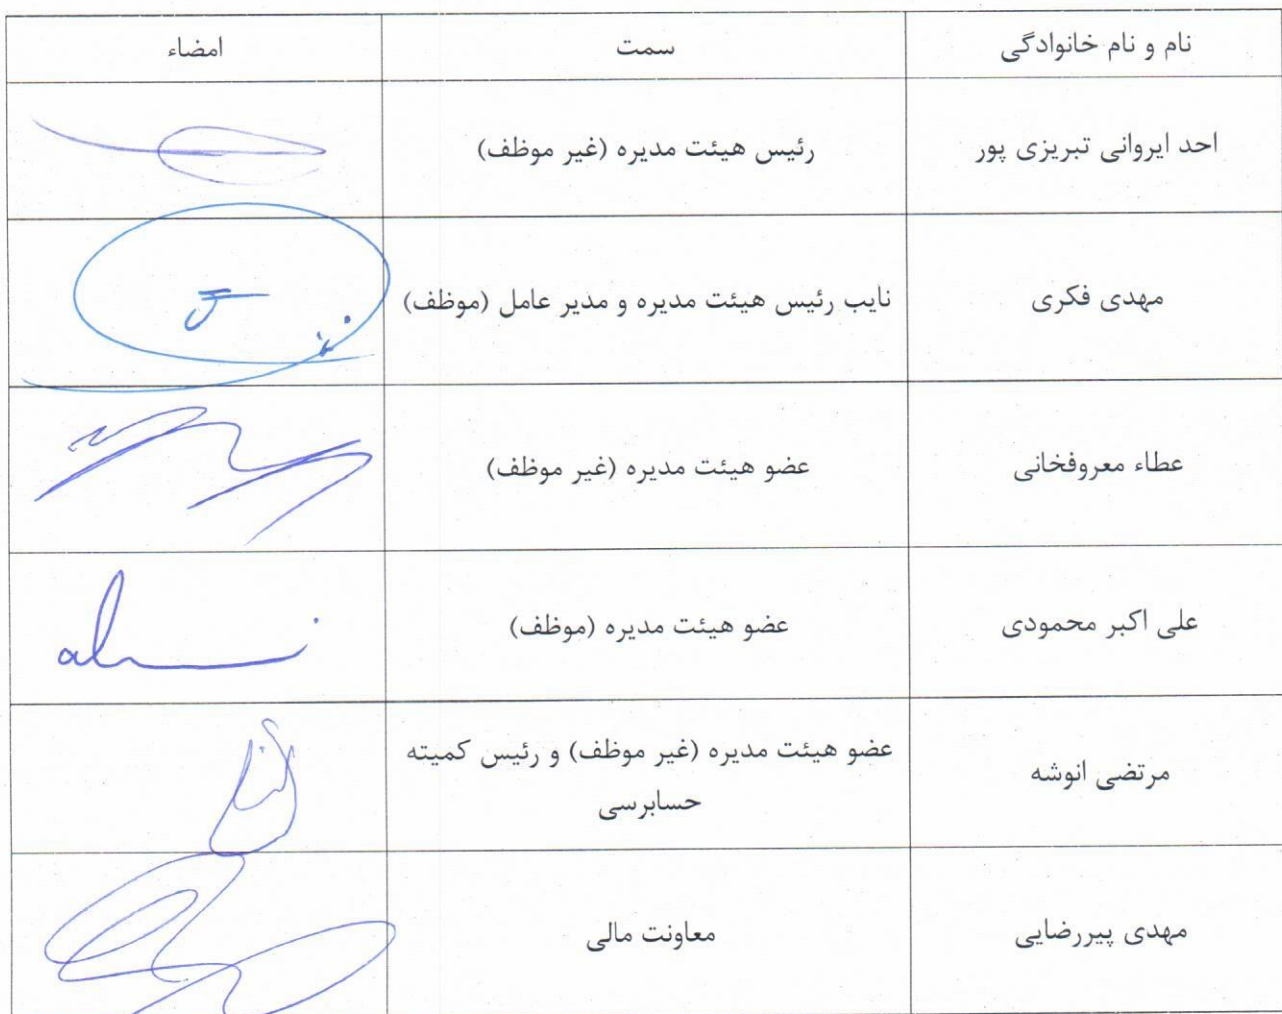 نام و نام خانوادگی سمت امضاء
احد ایروانی تبریزی پور رئیس هیئت مدیره (غیر موظف)
مهدی فکری نایب رئیس هیئت مدیره و مدیر عامل (موظف)
عطاء معروفخانی عضو هیئت مدیره (غیر موظف)
علی اکبر محمودی عضو هیئت مدیره (موظف)
مرتضی انوشه عضو هیئت مدیره (غیر موظف) و رئیس کمیته
حسابرسی
مهدی پیررضایی معاونت مالی